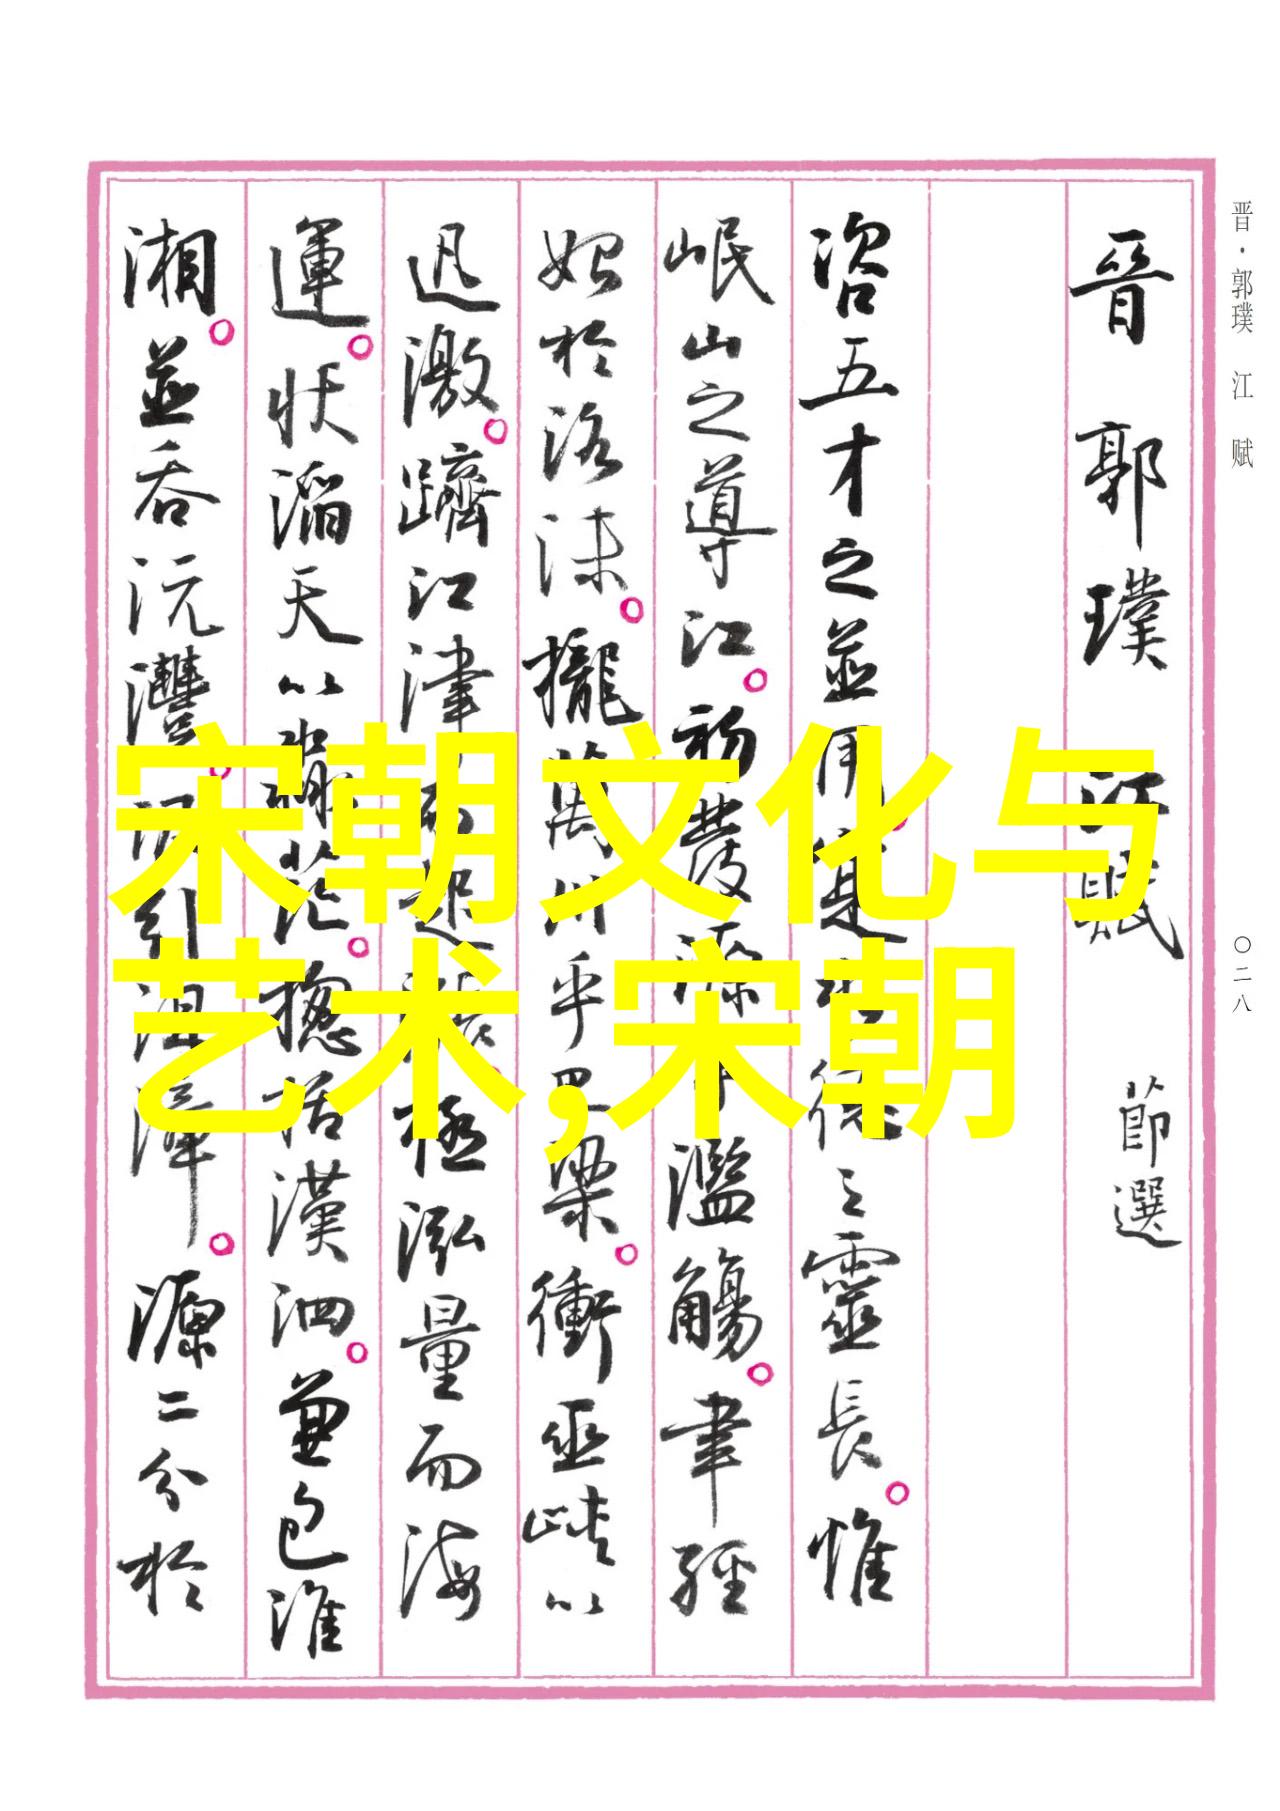 晋·郭璞 江 赋
〇二八
晉 郭 璞 江 賦 節選
咨五才之並用 寔水德之靈長 惟
岷山之導江 初發源乎濫觴 聿經
始於洛沫 攏萬川乎巴梁 衝巫峽以
迅激 躋江津而起漲 極泓量而海
運 狀滔天以淼茫 揔括漢泗 兼包淮
湘 並吞沅澧 汲引沮漳 源二分於
宋朝文化与
艺术,宋朝